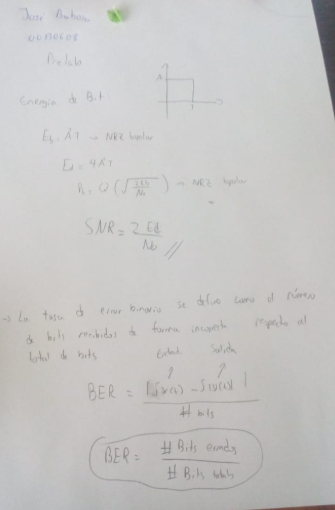 Jose
A
1
Energia de Bit
Eb = A²T → NRZ bipolar
Ed = 4A²T
Pe = Q(√(2Eb/No)) → NRZ bipolar
SNR = 2 Ed / No //
→ La tasa de error binario se define como el número
de bits recibidos de forma incorrecta respecto al
total de bits
Entrada Salida
BER = / # bits
BER = # Bits errados / # Bits totales